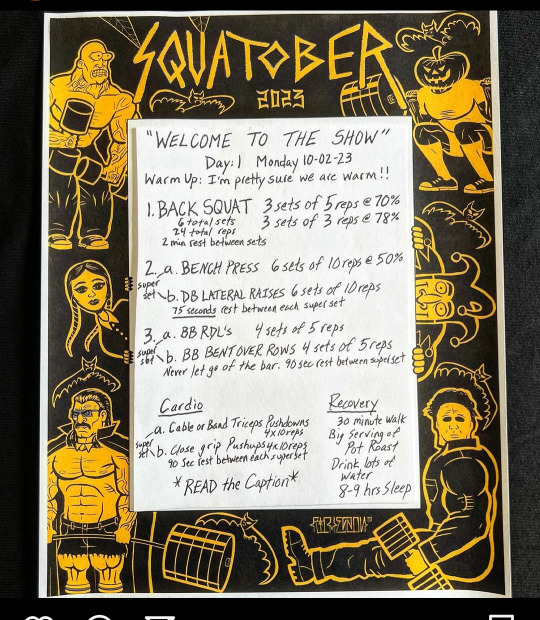 SQUATOBER
2023
"WELCOME TO THE SHOW"
Day: 1 Monday 10-02-23
Warm Up: I'm pretty sure we are warm!!
1. BACK SQUAT 3 sets of 5 reps @ 70%
6 total sets 3 sets of 3 reps @ 78%
24 total reps
2 min rest between sets
2. a. BENCH PRESS 6 sets of 10 reps @ 50%
super
set b. DB LATERAL RAISES 6 sets of 10 reps
75 seconds rest between each superset
3. a. BB RDL's 4 sets of 5 reps
super
set b. BB BENTOVER ROWS 4 sets of 5 reps
Never let go of the bar. 90 sec rest between superset
Cardio
a. Cable or Band Triceps Pushdowns
4x10reps
super
set b. Close grip Pushups 4x10reps
90 Sec rest between each superset
*READ the Caption*
Recovery
30 minute Walk
Big Serving of
Pot Roast
Drink lots of
water
8-9 hrs Sleep